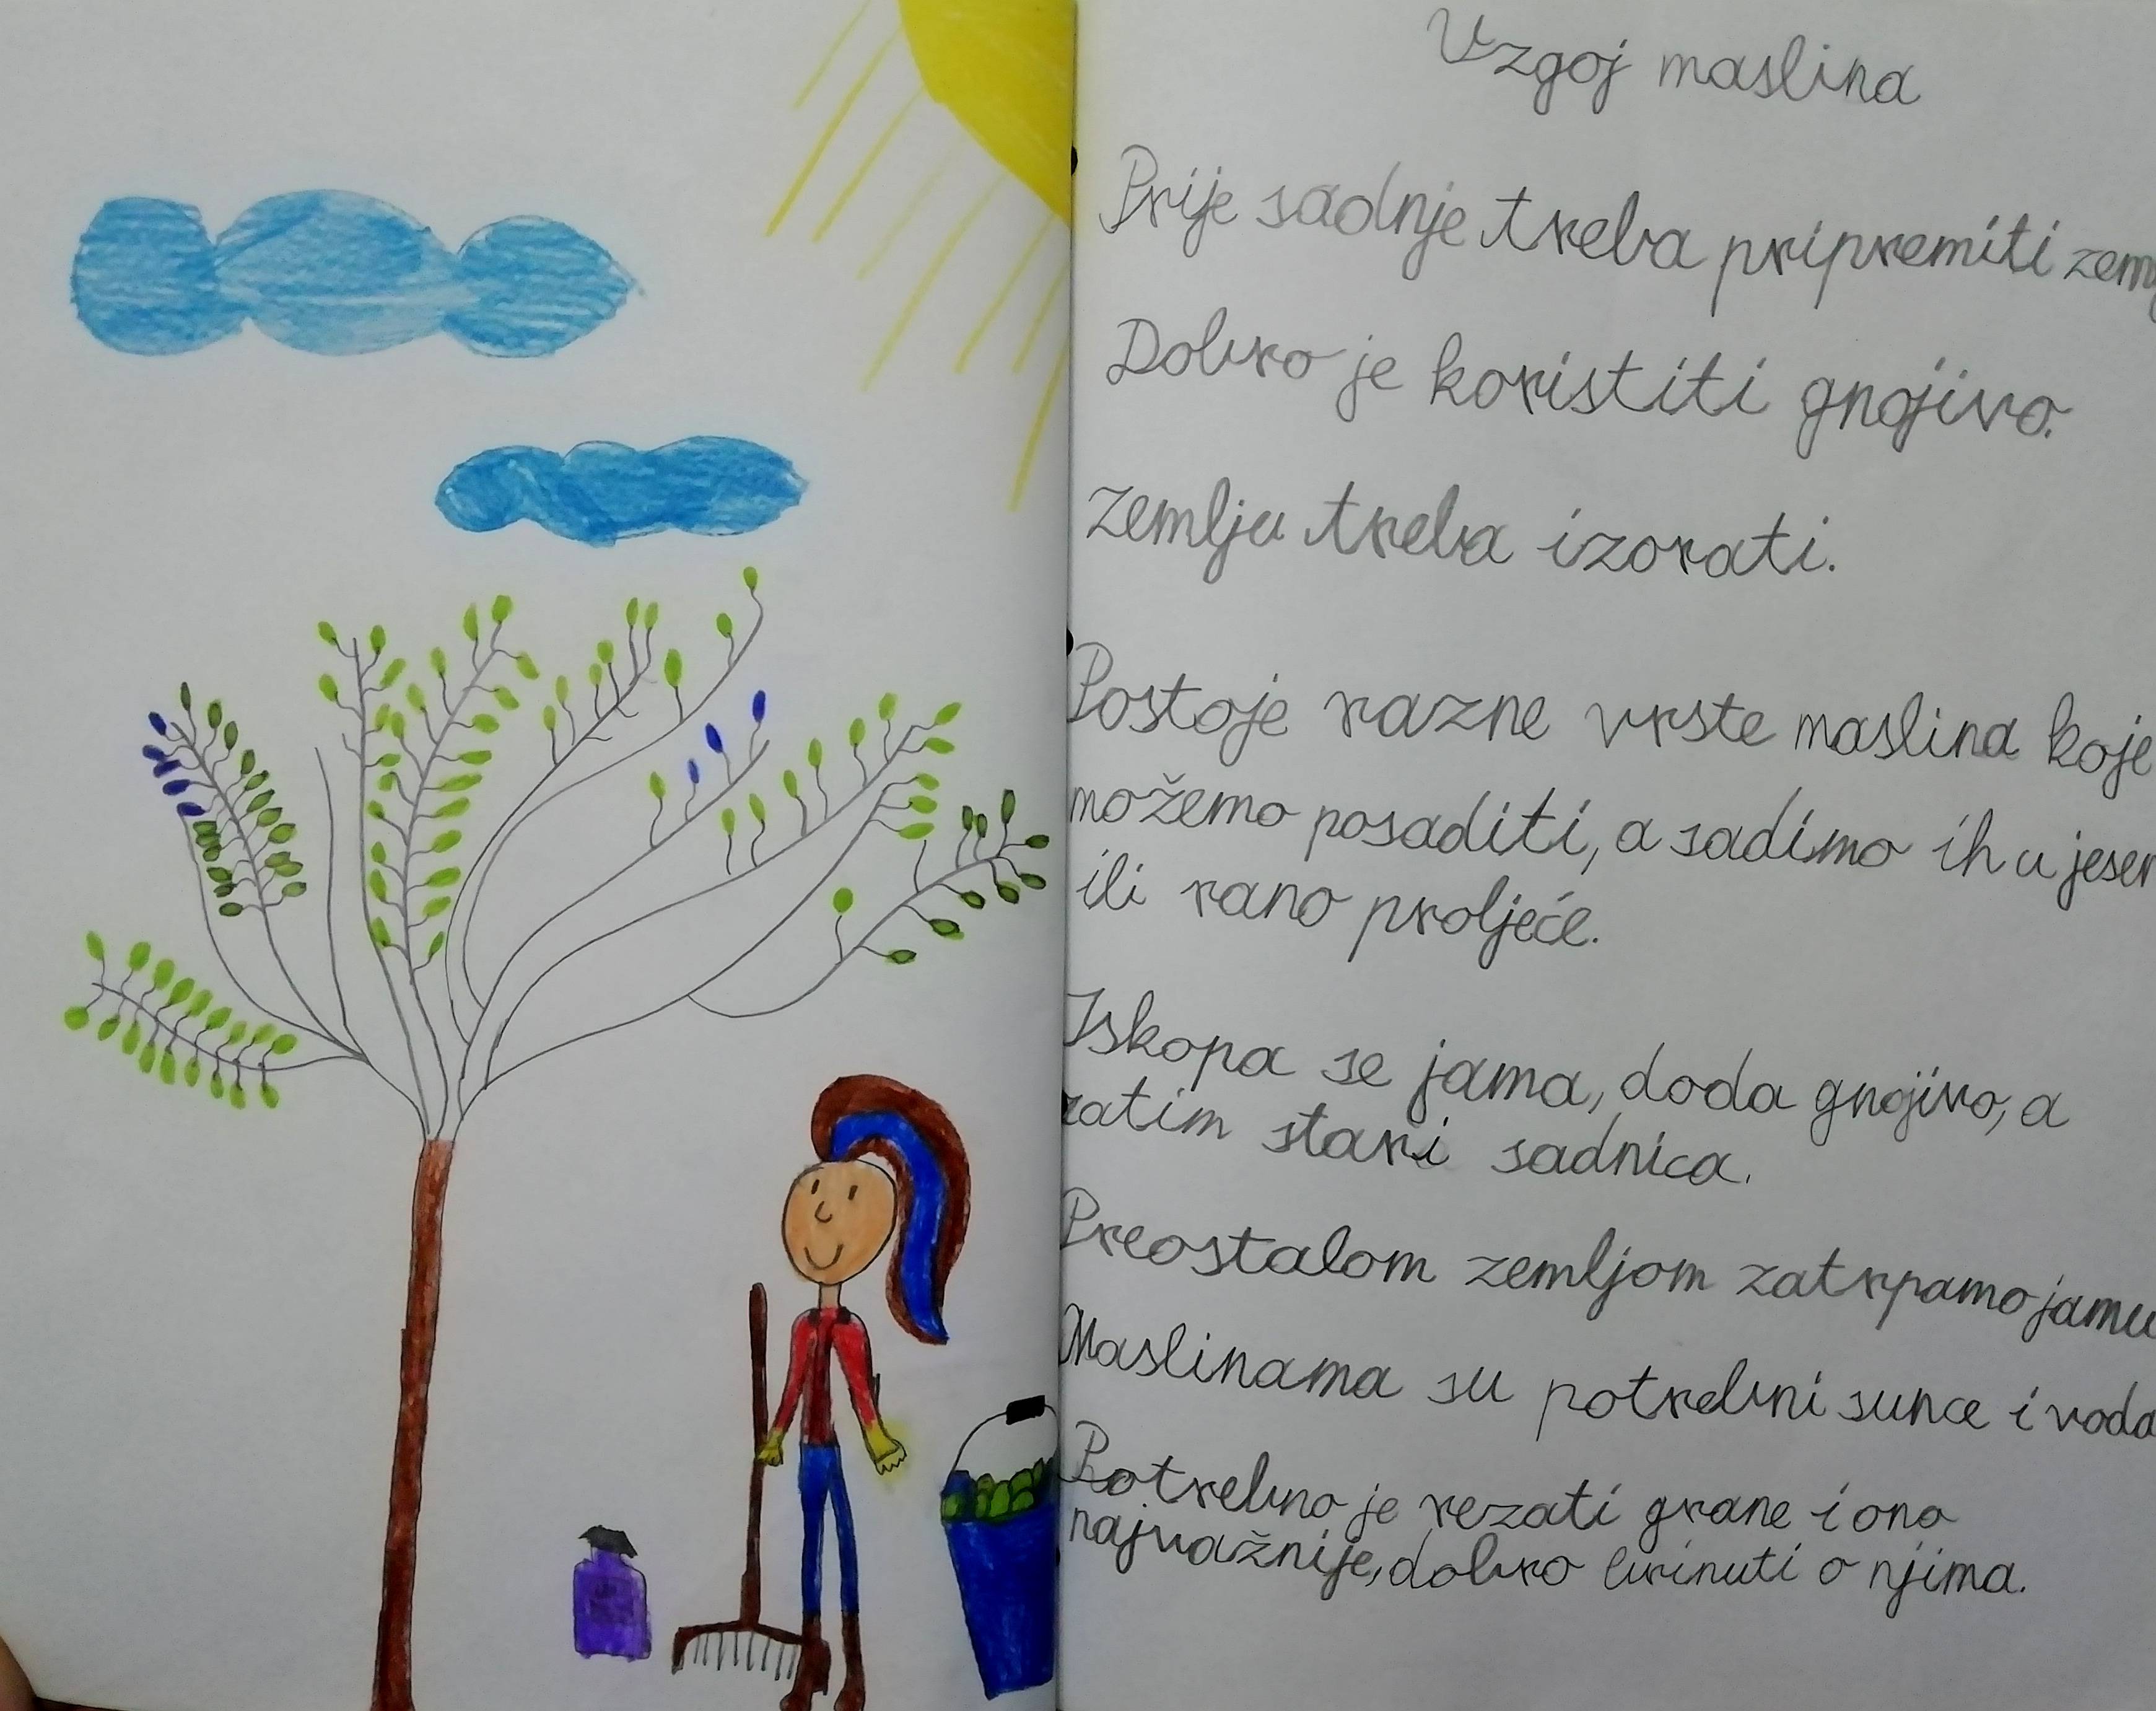 Uzgoj maslina
Prije sadnje treba pripremiti zem
Dobro je koristiti gnojivo.
Zemlju treba izorati.
Postoje razne vrste maslina koje
možemo posaditi, a sadimo ih u jesen
ili rano proljeće.
Iskopa se jama, doda gnojivo, a
zatim stavi sadnica.
Preostalom zemljom zatrpamo jamu
Maslinama su potrebni sunce i voda
Potrebno je rezati grane i ono
najvažnije, dobro brinuti o njima.